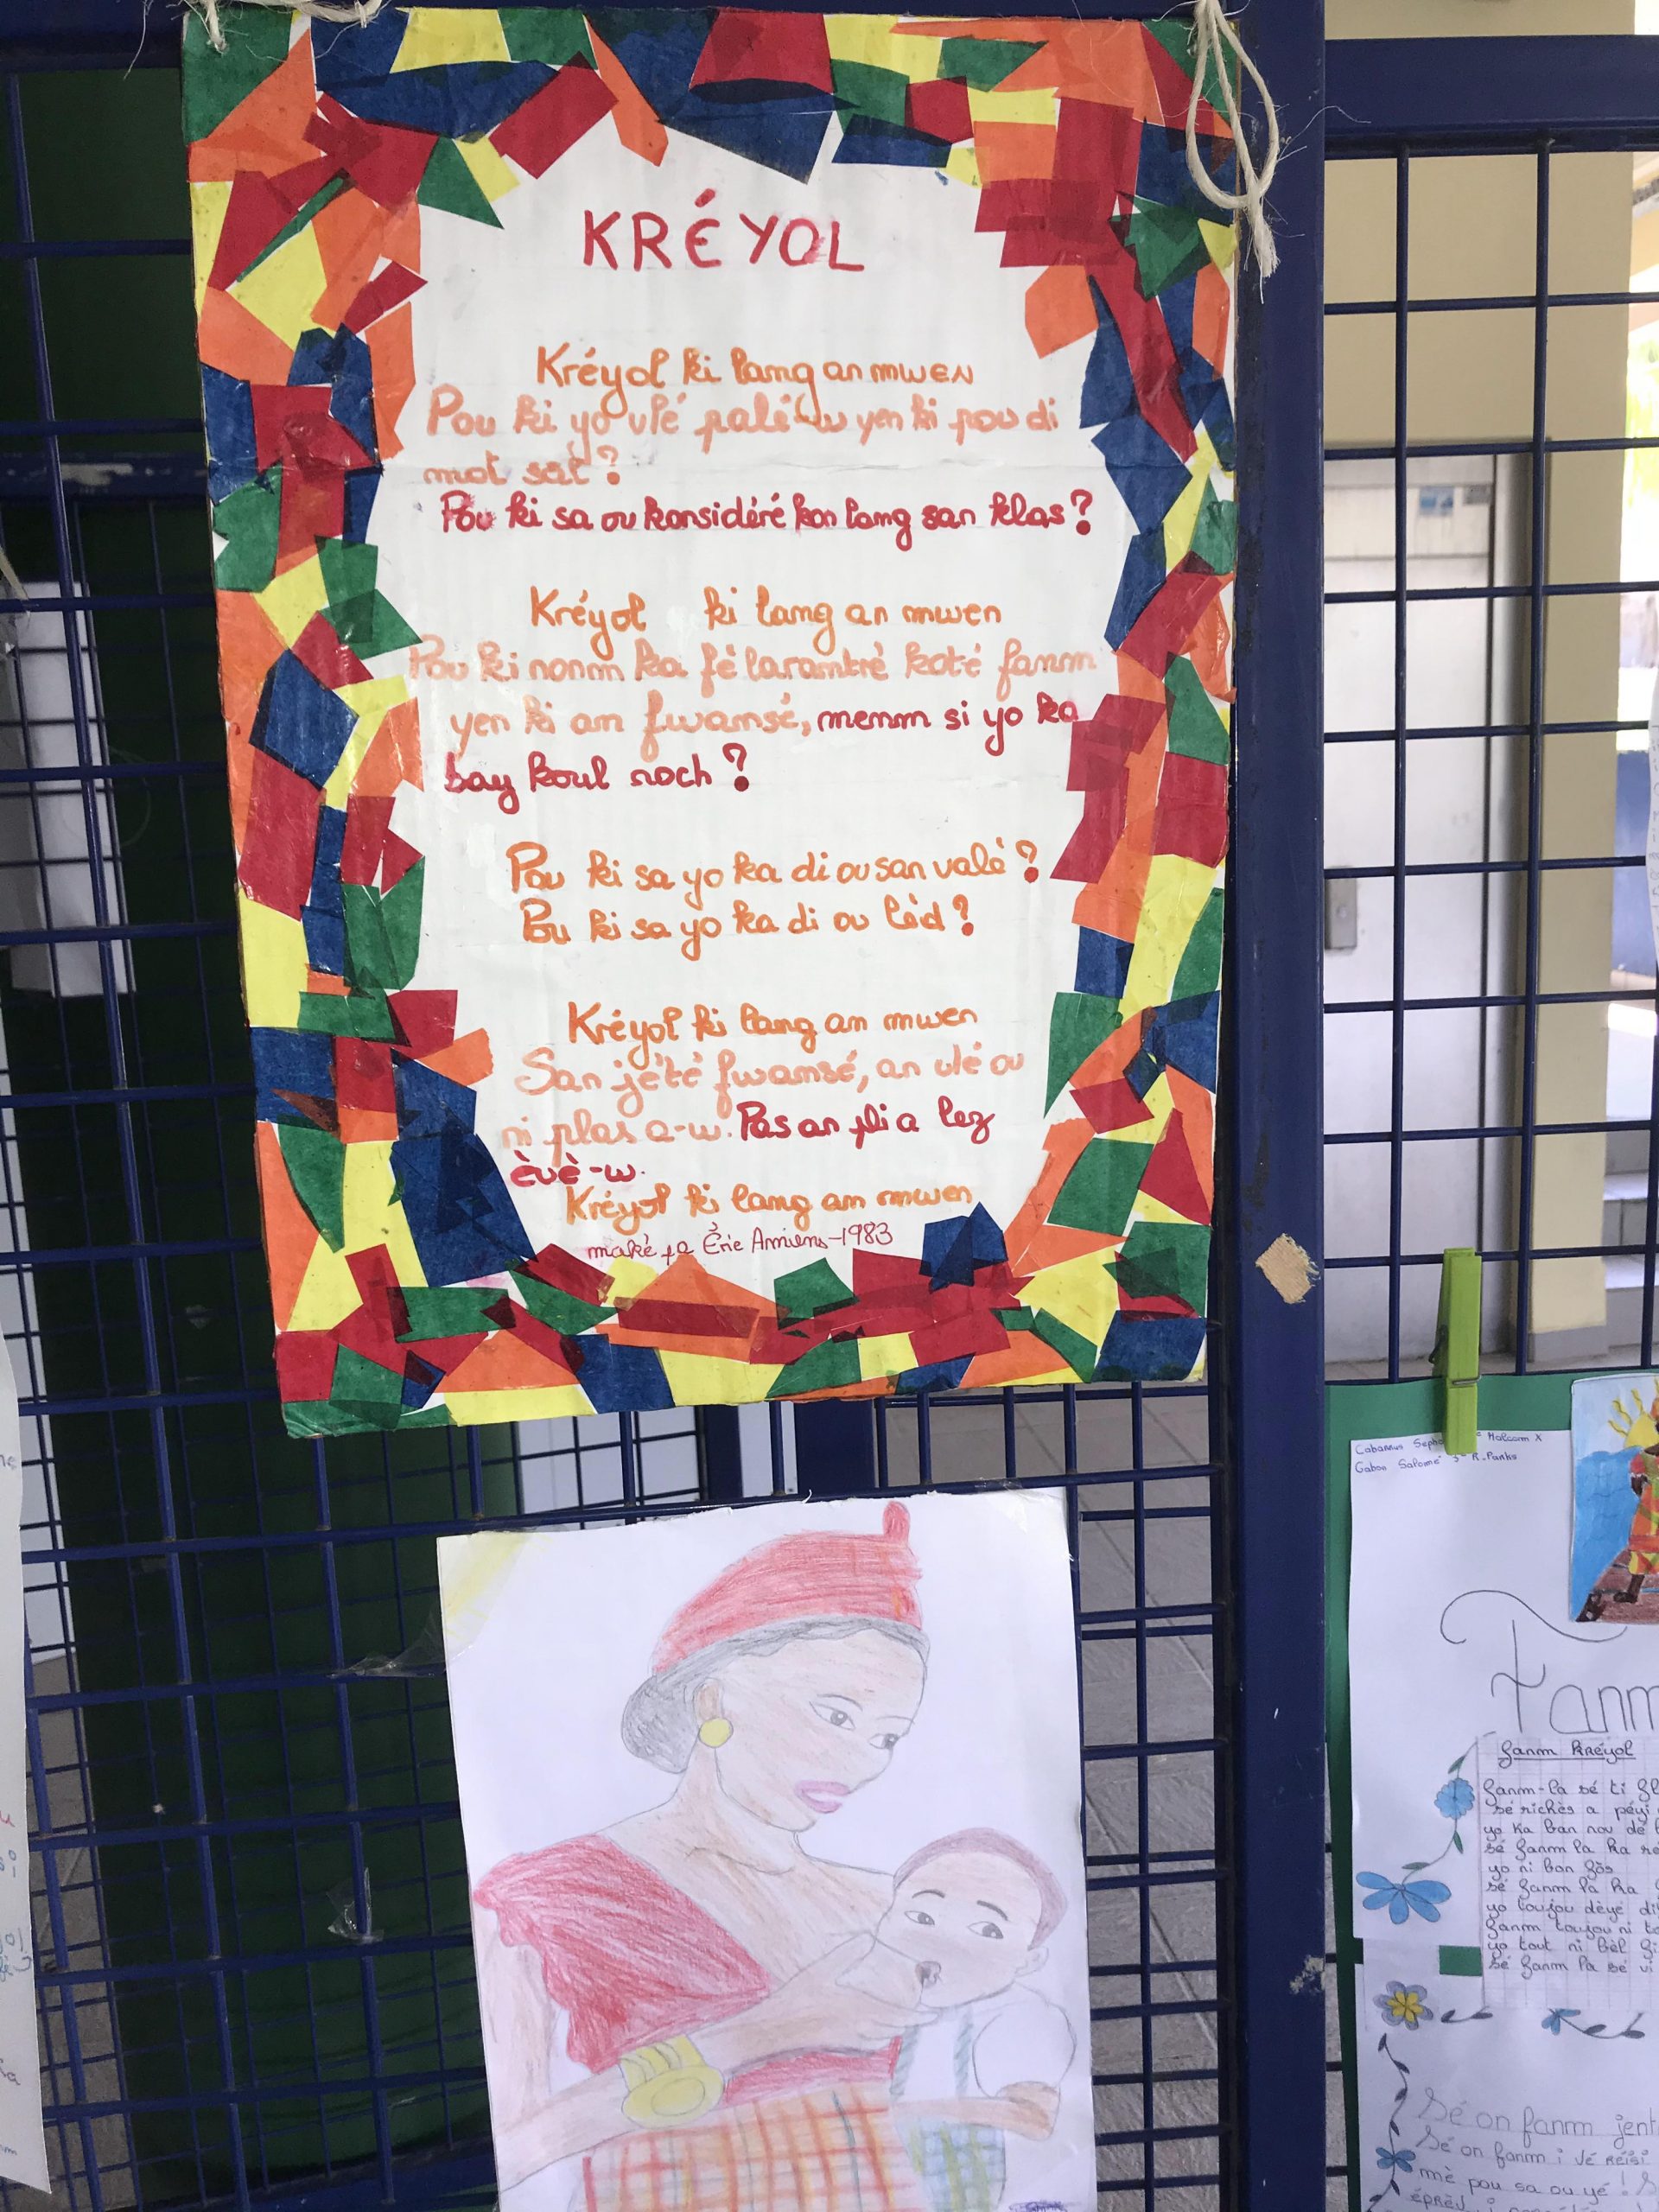 KRÉYOL
Kréyol ki lang an mwen
Pou ki yo vlé palé'w yen ki pou di
mot sal?
Pou ki sa ou konsidéré kon lang san klas?
Kréyol ki lang an mwen
Pou ki nonm ka fè larantré koté fanm
yen ki an fwansé, menm si yo ka
bay koul roch?
Pou ki sa yo ka di ou san valè?
Pou ki sa yo ka di ou lèd?
Kréyol ki lang an mwen
San jété fwansé, an vlé ou
ni plas a-w. Pas an pli a lez
èvè-w.
Kréyol ki lang an mwen
maké pa Éric Amiens-1983
Malcom X
Gabon Salomé 3e R. Parks
Fanm
Fanm kréyol
Fanm-la sé ti
sé richès a péyi
yo ka ban nou dè
sé fanm la ka
yo ni bon
sé fanm la ka
yo toujou dèyè
fanm toujou ni
yo tout ni bèl
sé fanm la sé
Sé on fanm
Sé on fanm i vé réisi
mè pou sa ou yé!